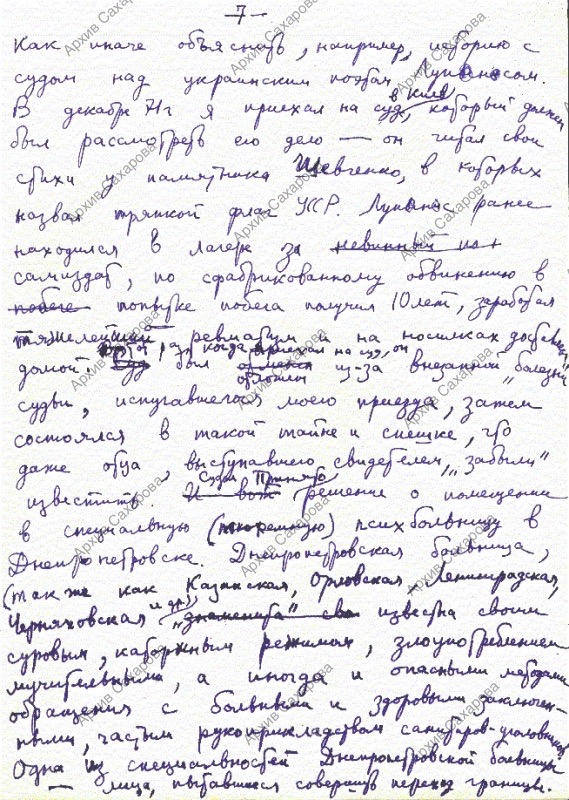 — 7 —
Как иначе объяснить, например, историю с
судом над украинским поэтом Лупыносом.
В декабре 71 г я приехал на суд в Киев, который должен
был рассмотреть его дело — он читал свои
стихи у памятника Шевченко, в которых
назвал тряпкой флаг УССР. Лупынос ранее
находился в лагере за невинный
самиздат, по сфабрикованному обвинению в
побеге попытке побега получил 10 лет, заработал
тяжелейший ревматизм и на носилках доставлен
домой. Суд был когда я приехал на суд, он
отложен из-за внезапной "болезни"
судьи, испугавшегося моего приезда, затем
состоялся в такой тайне и спешке, что
даже отца, выступавшего свидетелем, "забыли"
известить. И вот Судом принято решение о помещении
в специальную (тюремную) психбольницу в
Днепропетровске. Днепропетровская больница,
(так же как Казанская, Орловская, Ленинградская,
Черняховская и др.) "знаменита" известна своим
суровым, каторжным режимом, злоупотреблением
мучительными, а иногда и опасными методами
обращения с больными и здоровыми заключен-
ными, частым рукоприкладством санитаров-уголовников.
Одна из специальностей Днепропетровской больницы
— лица, пытавшиеся совершить переход границы.
Архив Сахарова